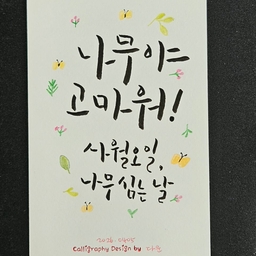 나무야
고마워!
사월오일,
나무 심는 날
Calligraphy Design by